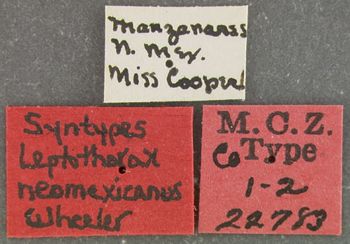 Manzanares
N. Mex.
Miss Cooper
Syntypes
Leptothorax
neomexicanus
Wheeler
M.C.Z.
Co Type
1-2
22783